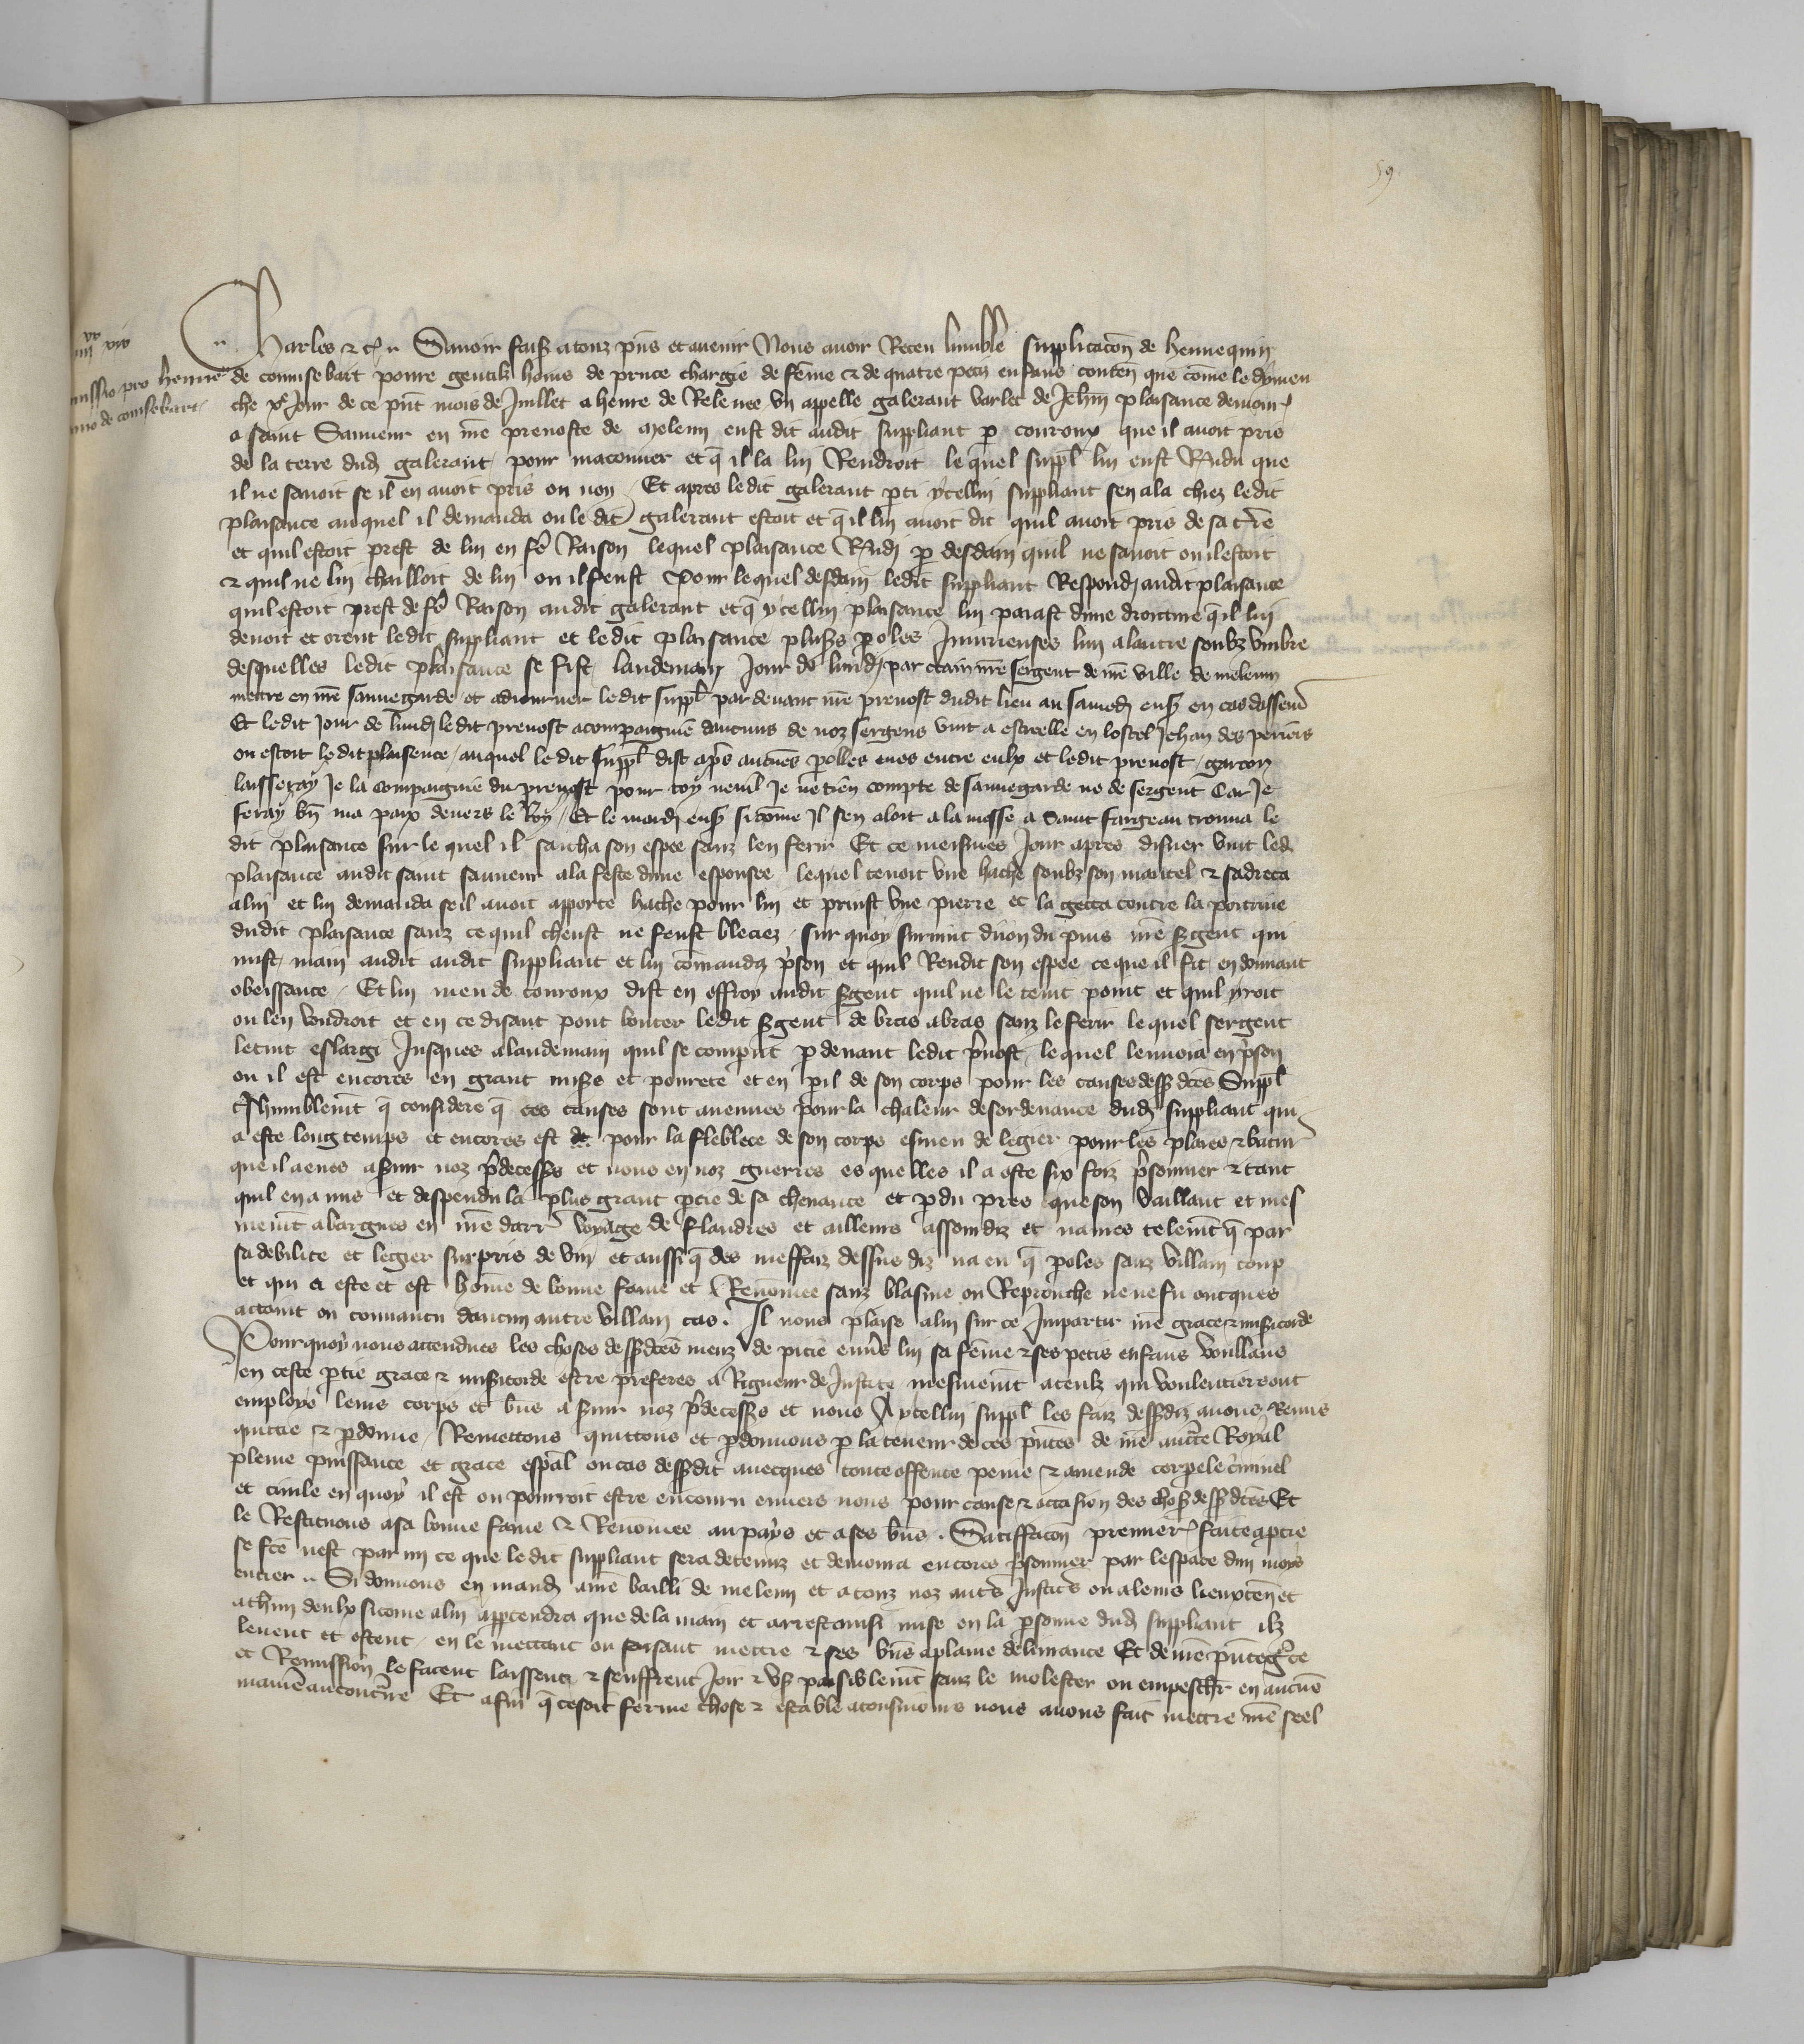 59
Charles etc. Savoir faisons a touz p̄ns et avenir Nous avoir Receu lumble supplicacōn de hennequin
missio pro henne
de comsebart povre gentilz hōms de pruce chargie de fēme et de quatre petiz enfans contēn que cōme le dymen
no de comsebart
che xe Jour de ce p̄nt mois de Juillet a heure de Relevee vn appelle galerant varlet de Jehan plaisance demour
a saint Sauveur en nr̄e prevoste de meleun eust dit audit suppliant p couroux que il avoit pris
de la terre dud galerant pour maconner et q̄ il la lui Rendroit lequel suppl lui eust Rndu que
il ne savoit se il en avoit pris ou non Et apres ledit galerant pti ycellui suppliant sen ala chiez ledit
plaisance auquel il demanda ou le dit galerant estoit et q̄ il lui avoit dit quil avoit pris de sa tr̄e
et quil estoit prest de lui en fe Raison lequel plaisance Rndi p desdain quil ne savoit ou il estoit
et quil ne lui chailloit de lui ou il feust Pour lequel desdain ledit suppliant Respondi audit plaisance
quil estoit prest de fe Raison audit galerant et q̄ ycellui plaisance lui paiast dune droiture q̄ il lui
devoit et orent ledit suppliant et ledit plaisance plus̄s poles Iniurieuses lun a lautre soubz vmbre
desquelles ledit plaisance se fist landemain Jour de lundi par ctain nr̄e sergent de nr̄e ville de meleun
mettre en nr̄e sauvegarde et adiourner ledit suppl pardevant nr̄e prevost dudit lieu au samedi ens en cas dasseur
Et ledit Jour de lundi ledit prevost acompaignie daucuns de noz sergens vint a estrcelle en lostel Jehan des
ou estoit ledit plaisence auquel ledit suppl dist apr̄s aucunes polles eues entre eulx et ledit prevost garcon
laisseray Je la compaignie du prevost pour toy nenil Je ne tien compte de sauvegarde ne de sergent Car Je
feray bn̄ ma paix devers le Roy Et le mardi ens si cōme Il sen aloit a la messe a saint fargeau trouva le
dit plaisance sur lequel il sacha son espee sanz len ferir Et ce meismes Jour apres disner vint led
plaisance audit saint sauveur a la feste dune espousee lequel tenoit vne hache soubz son mantel et sadreca
a lui et lui demanda se il avoit apporte hache pour lui et prinst vne pierre et la getta contre la poitrine
dudit plaisance sanz ce quil cheust ne feust bleciez sur quoy survint nr̄e sgent qui
mist main audit audit suppliant et lui cōmanda pson et quil Rendit son espee ce que il fit en donnant
obeissance Et lui meu de couroux dist en effroy audit sgent quil ne le tenit point et quil yroit
ou len voudroit et en ce disant pout bouter ledit sgent de bras a bras sanz le ferir lequel sergent
letint eslargi Jusques a landemain quil se comput pdevant ledit pvost lequel lenvoia en pson
ou il est encores en grant mis̄e et povrete et en pil de son corps pour les causes dess dctēs Suppl
humblemt q̄ considere q̄ ces causes sont avenues pour la chaleur desordenance dud suppliant qui
a este long temps et encores est de pour la fleblece de son corps esmeu de legier pour les plaies et batur
que il a eues a svir noz pdecess̄s et nous en noz guerres es quelles il a este six foiz psonnier et tant
quil en a mis et despendu la plus grant ptie de sa chevance et pdu pres que son vaillant et mes
memt a bargues en nr̄e darr voyage de flandres et ailleurs assomdiz et navres telemt q̄ par
sa debilite et legier surpris de vin et aussi q̄ des meffaiz dessus diz na eu q̄ poles sanz villain coup
et qui a este et est hōme de bonne fame et Renōmee sanz blasme ou Reprouche ne ne fu oncques
attaint ou convaincu daucun autre villain cas. Il nous plaise a lui sur ce Impartir nr̄e grace et misicorde
Pourquoy nous attendues les choses dess dctēs meuz de pitie envs lui sa fēme et ses petis enfans voullans
en ceste ptie grace et misicorde estre preferes a Rigueur de Justice mesmemt a ceulx qui voulentiers ont
employe leurs corps et bn̄s a svir noz pdecess̄s et nous A ycellui suppl les faiz dess diz avons Remis
quittie et pdonne Remettons quittons et pdonnons p la teneur de ces pn̄tes de nr̄e aucte Royal
pleine puissance et grace espal ou cas dess dit avecques toute offence peine et amende corpele criminel
et civile en quoy il est ou pourroit estre encouru envers nous pour cause et occasion des chos dess dctēs Et
le Restituons a sa bonne fame et Renōmee au pays et a ses bn̄s. Satiffacōn premier faite a ptie
se fcē nest parmi ce que ledit suppliant sera detenuz et demourra encores psonnier par lespace dun moys
entier Si donnons en mand a nr̄e bailli de meleun et a touz noz autrs Justics ou a leurs lieuxten et
a chun deulx si cōme a lui apptendra que de la main et arrest ainsi mise en la psonne dud suppliant ilz
levent et ostent en le mettant ou faisant mettre et ses bn̄s a plaine delivrance Et de nr̄e pnte gce
et Remission le facent laissent et seuffrent Joir et us paisiblemt sanz le molester ou empeschr en aucune
maniere au contre Et afin q̄ ce soit ferme chose et estable a tousiours nous avons fait mettre nr̄e seel